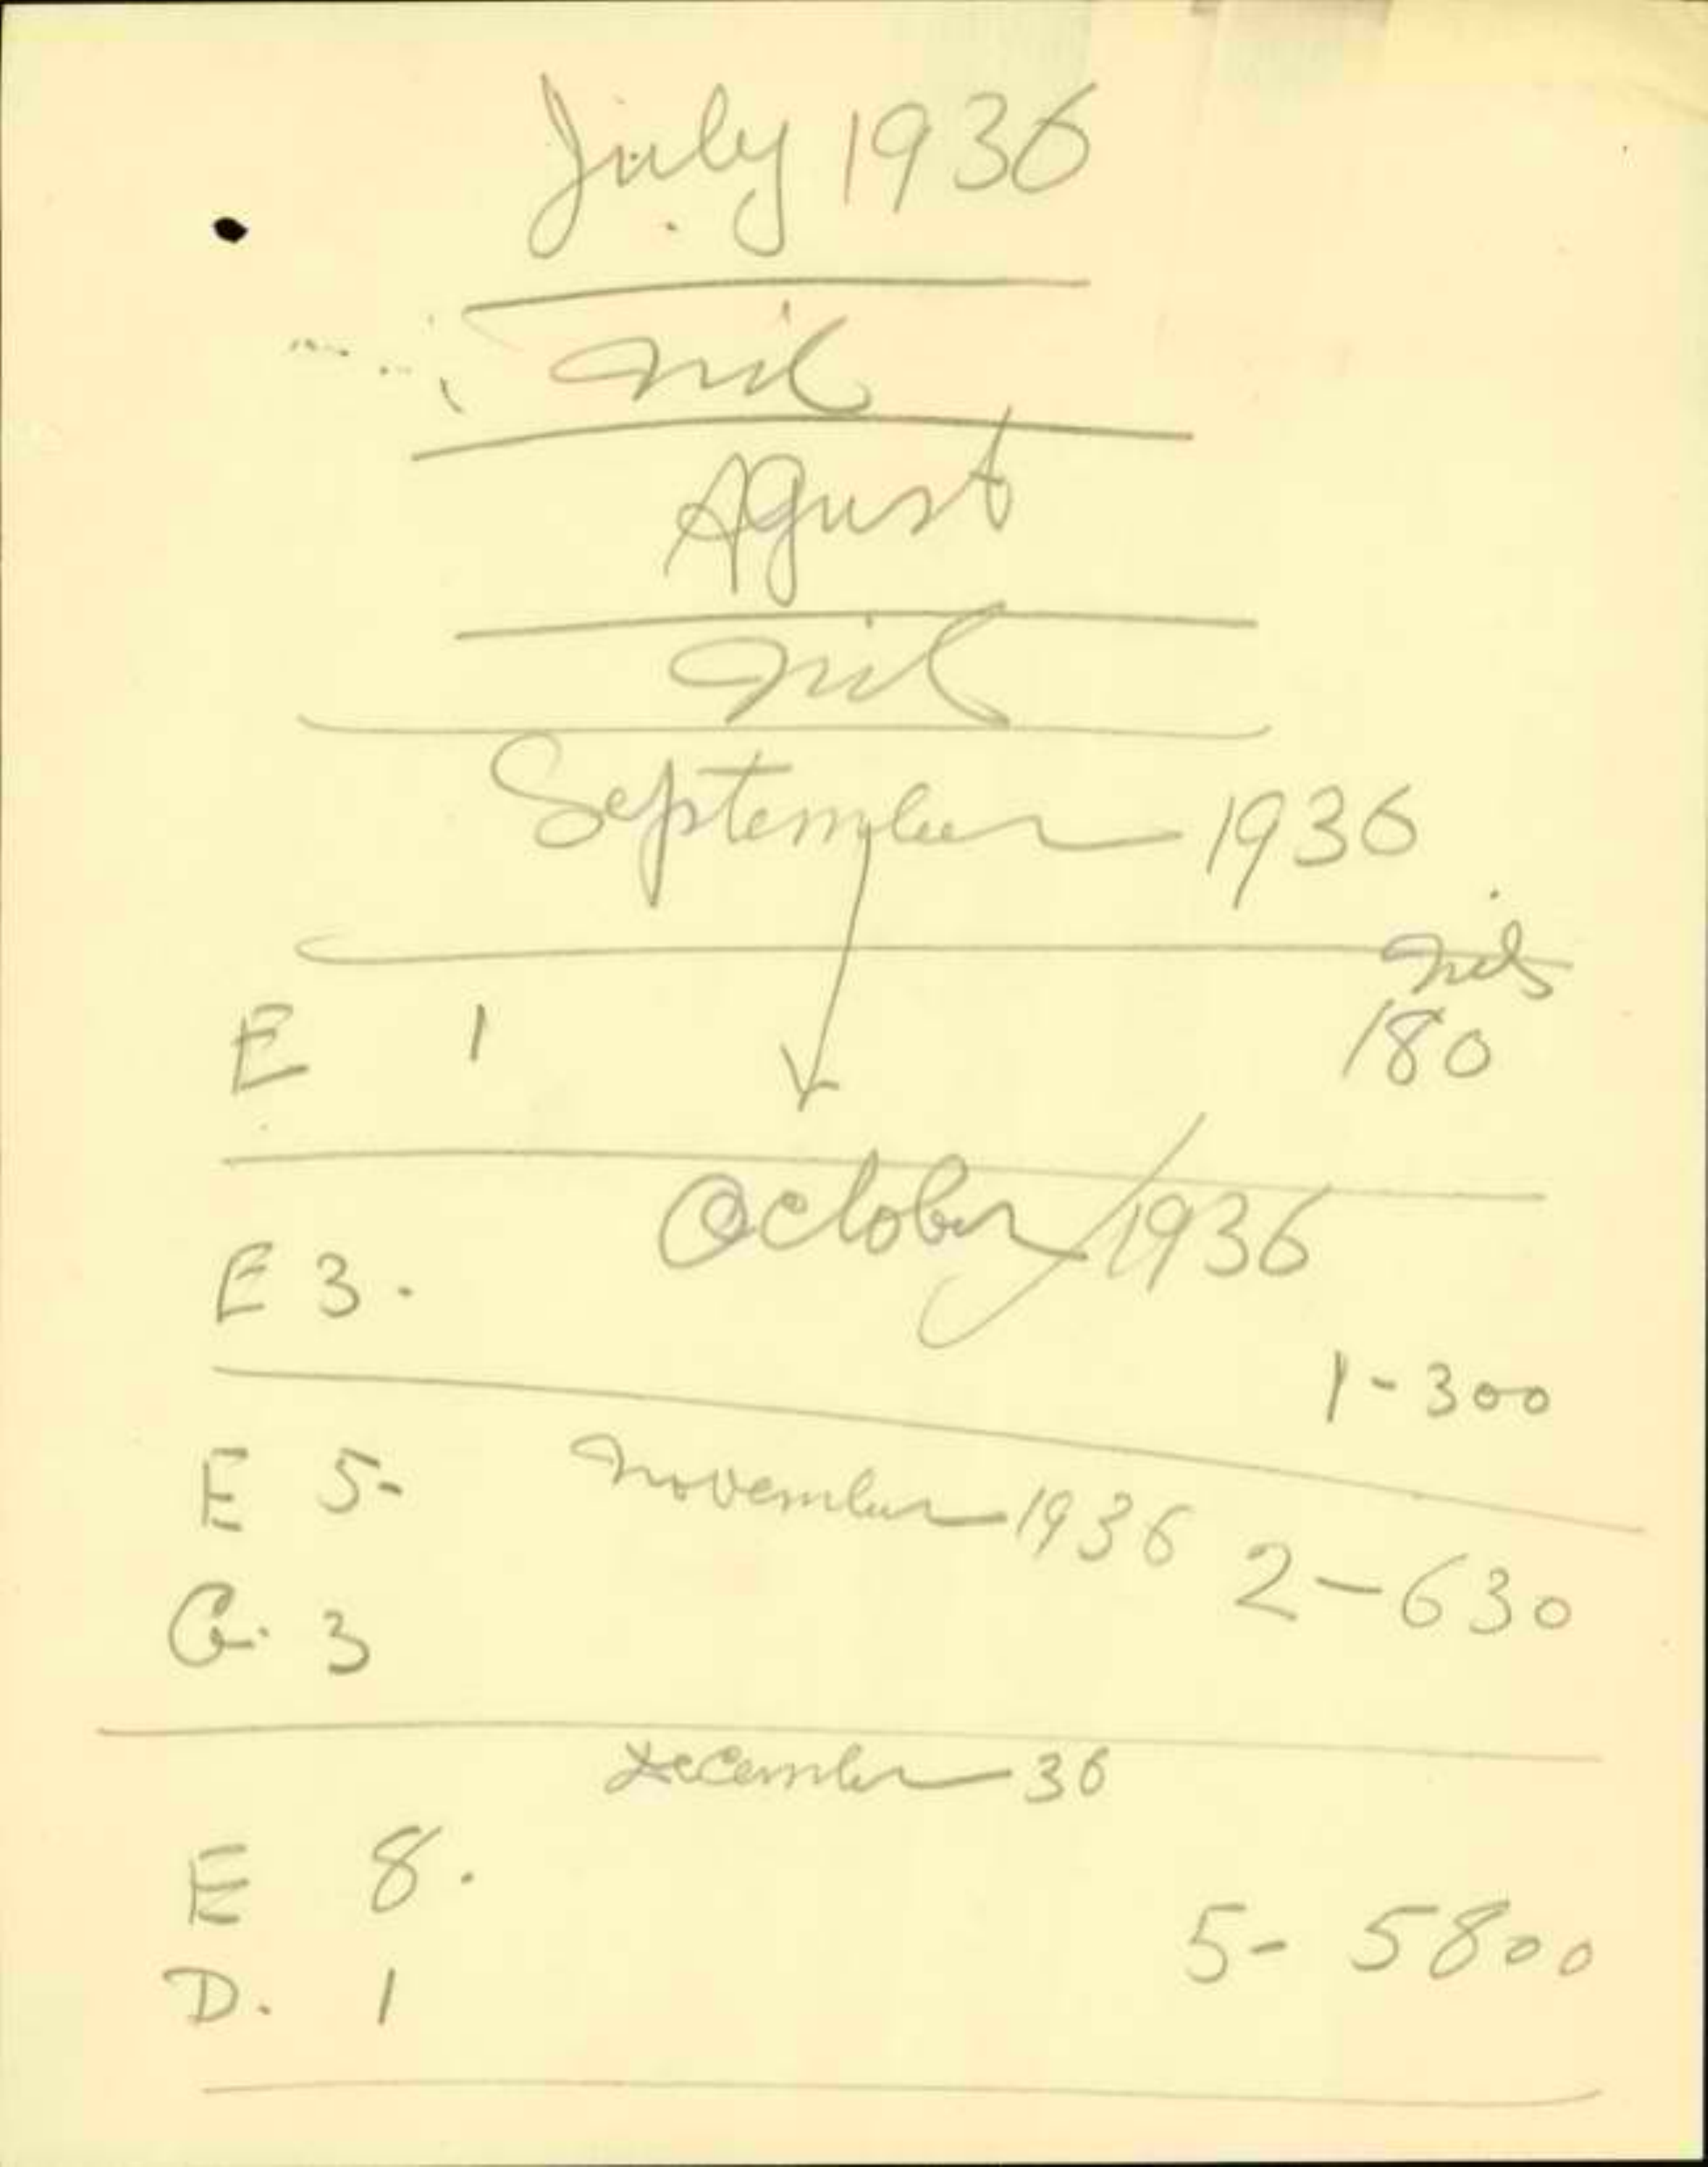 July 1936
nil
Agust
nil
September 1936
mils
E 1 180
October 1936
E 3.
1-300
E 5- November 1936 2-630
G. 3
December 36
E 8.
5- 5800
D. 1